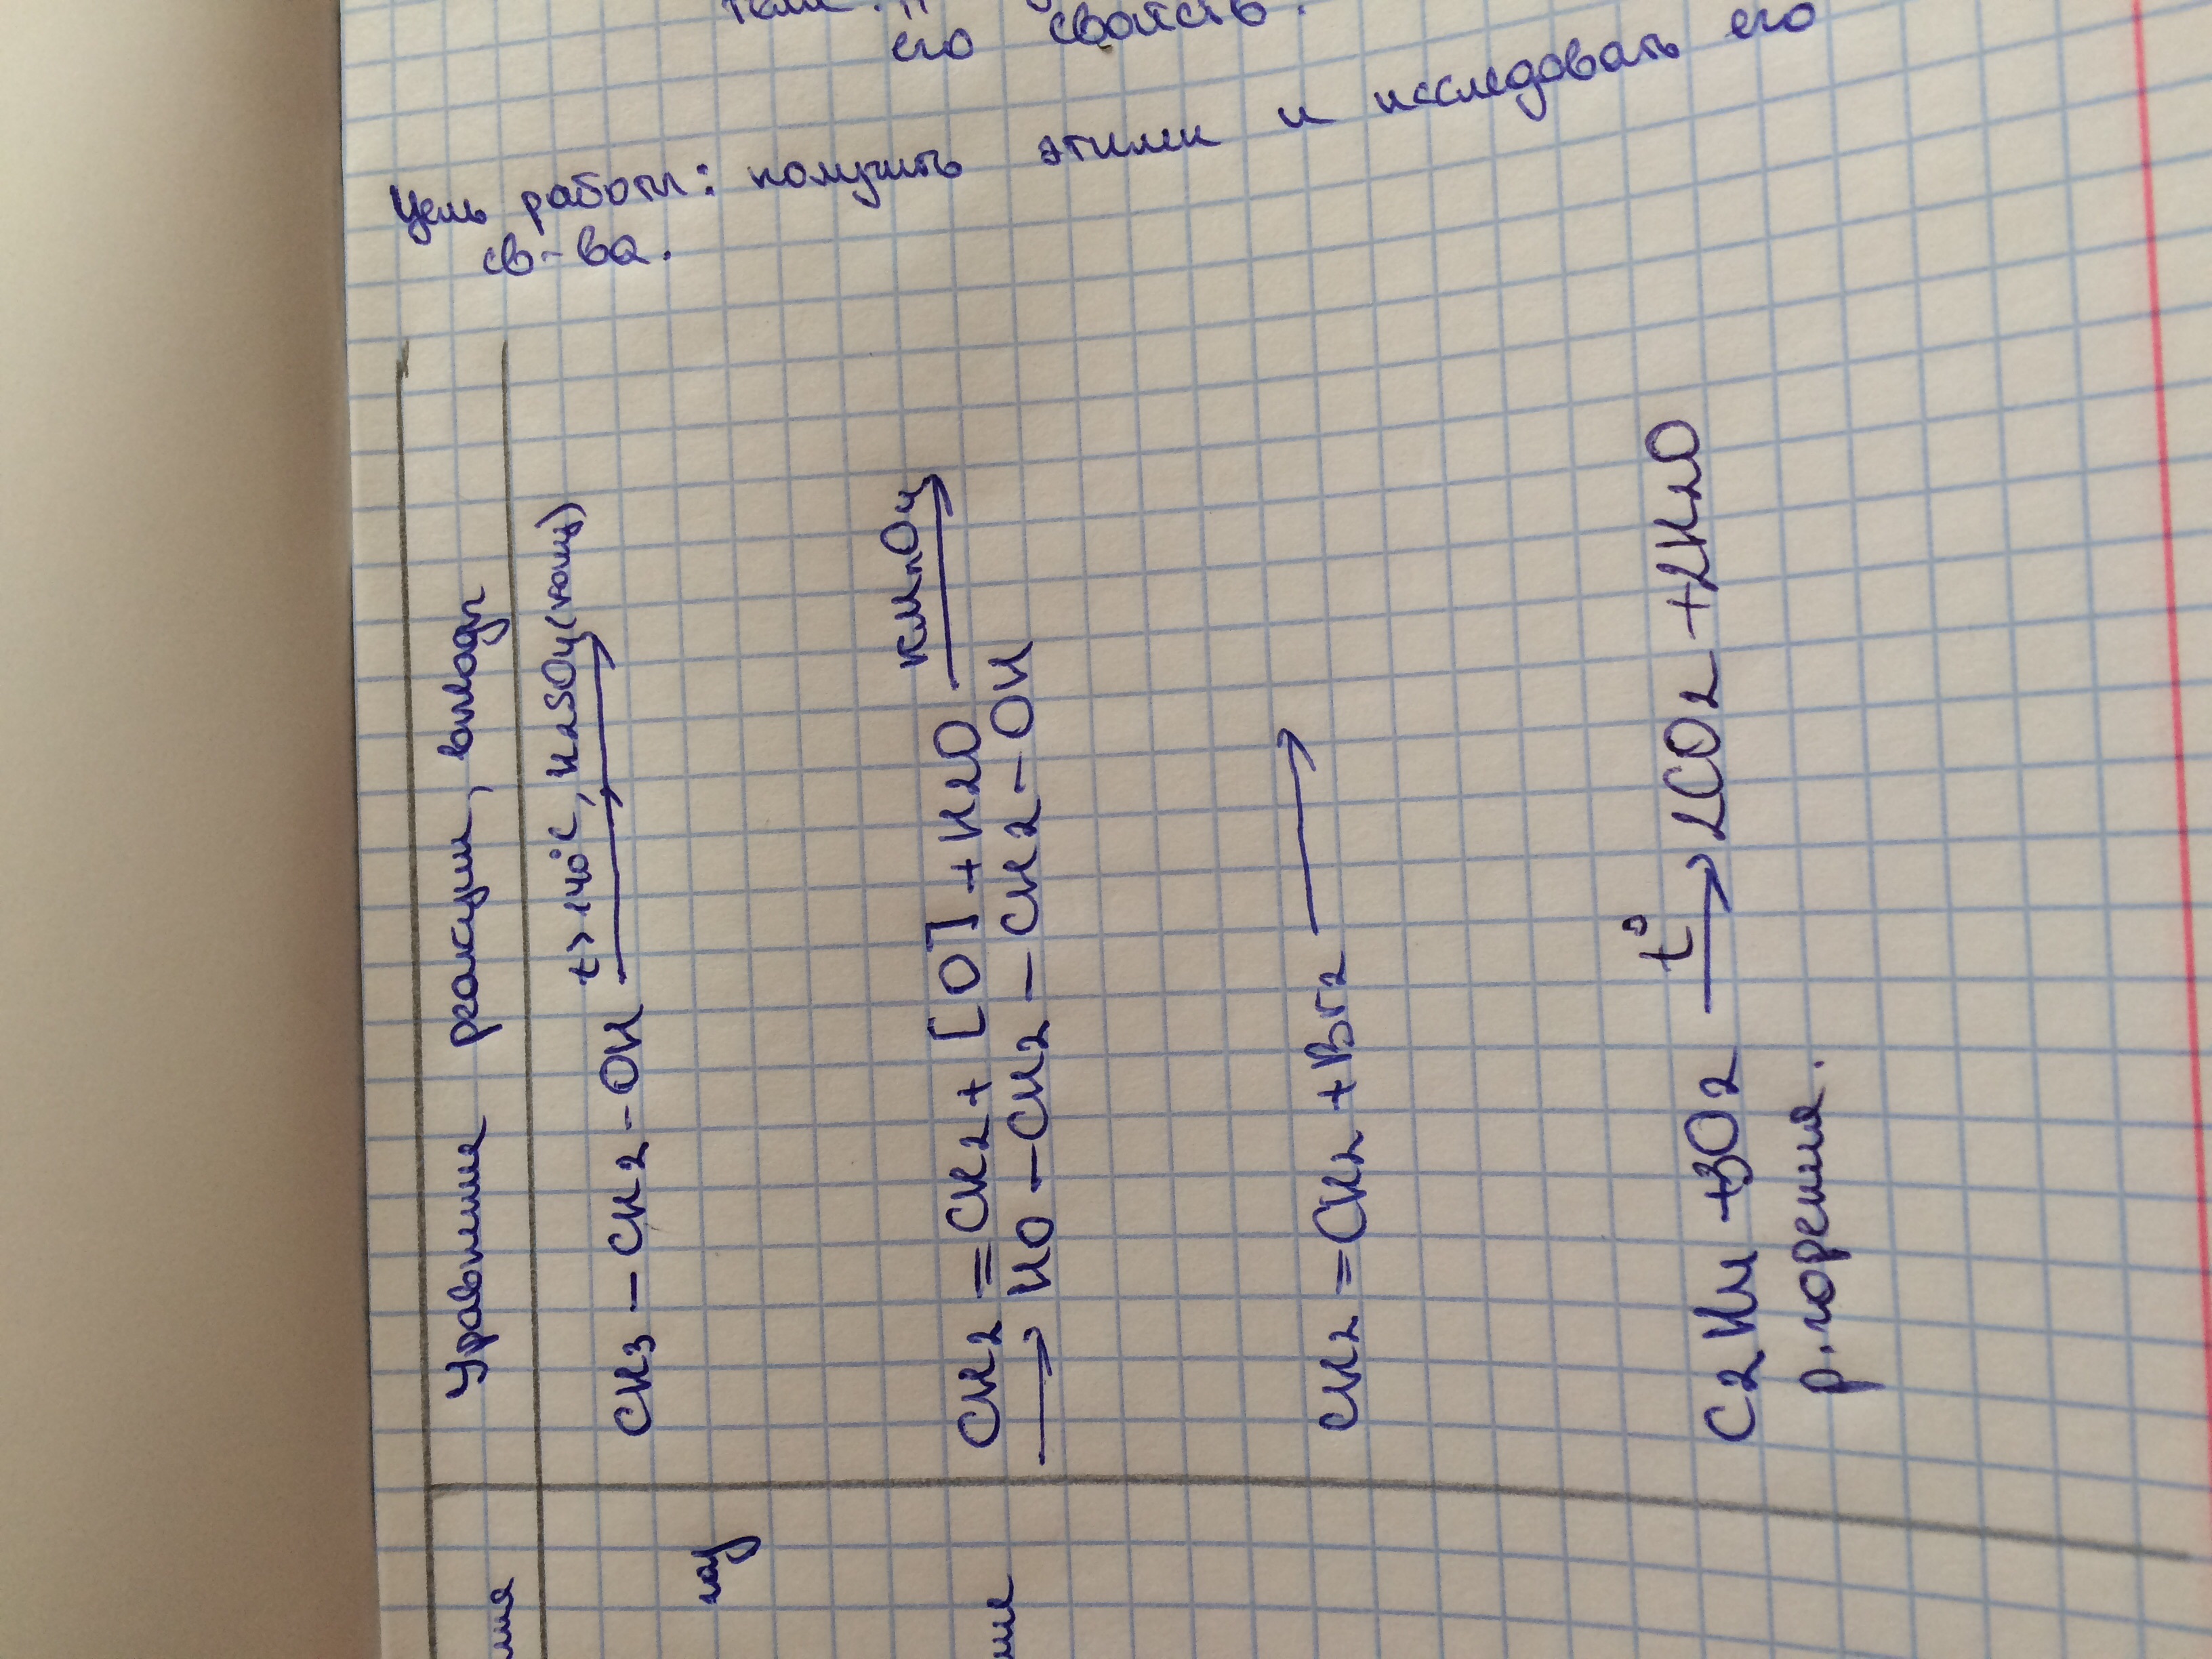 его свойств.
Цель работы: получить этилен и исследовать его
св-ва.
Уравнение реакции, выводы
CH3 – CH2 – OH t>140°C, H2SO4(конц) →
CH2 = CH2 + [O] + H2O KMnO4 →
→ HO – CH2 – CH2 – OH
CH2 = CH2 + Br2 →
C2H4 + 3O2 t° → 2CO2 + 2H2O
р. горения.